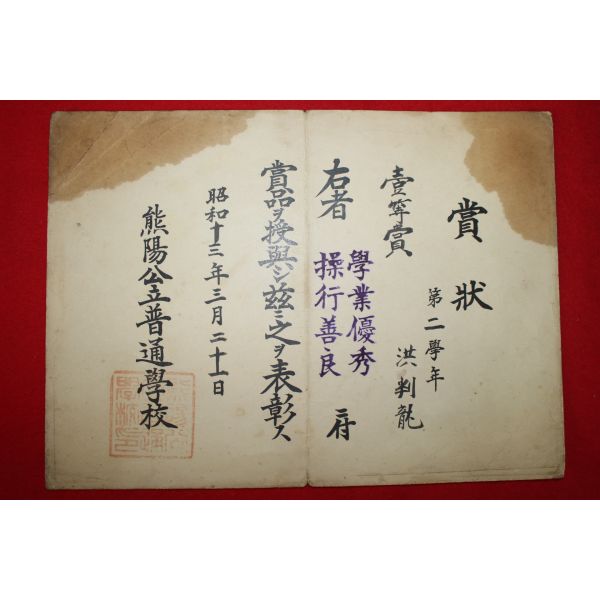 賞狀
第二學年
洪判龍
壹等賞
右者
學業優秀
操行善良
ニ付
賞品ヲ授與シ玆ニ之ヲ表彰ス
昭和十三年三月二十一日
熊陽公立普通學校